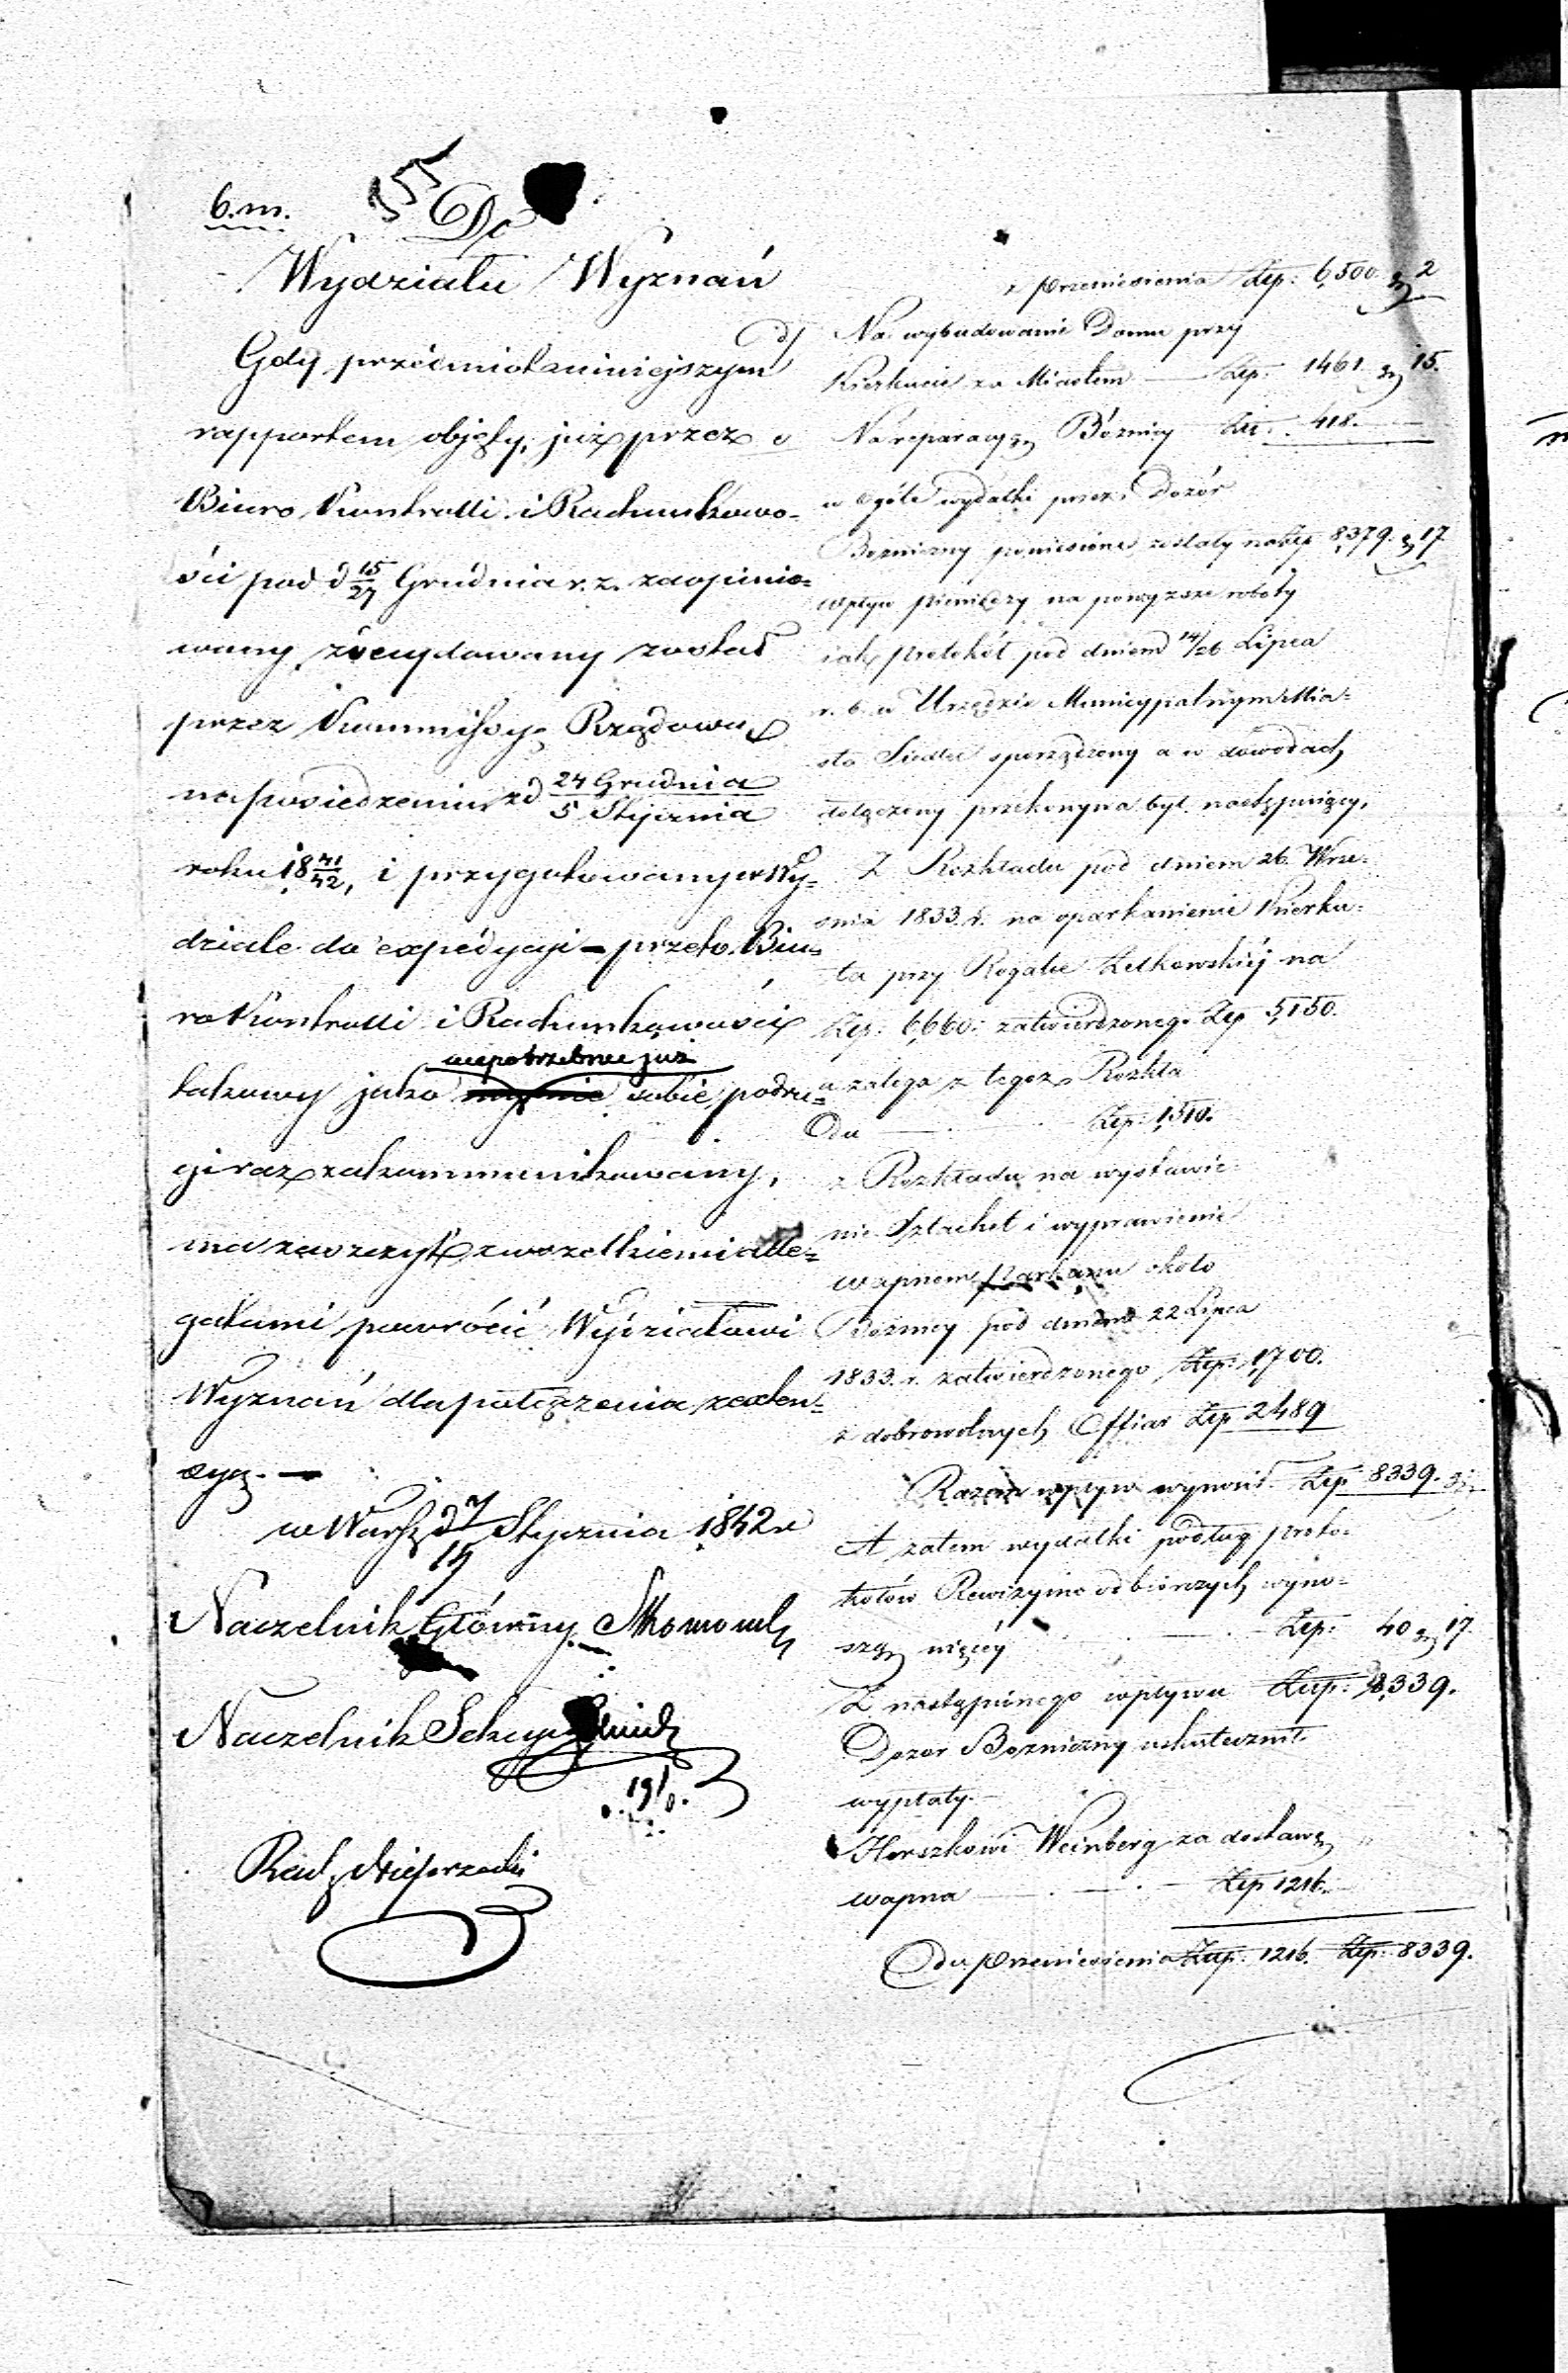 6.m.
Do
Wydziału Wyznań
Gdy przedmiot niniejszym
rapportem objęty, już przez
Biuro Kontrolli i Rachunkowo-
ści pod d 15/27 Grudnia r. z. zaopinio-
wany, zdecydowany został
przez Kommissyę Rządową
na posiedzeniu z d 24 Grudnia / 5 Stycznia
roku 18 41/42, i przygotowany w Wy-
dziale do expedycyi – przeto Biu-
ro Kontrolli i Rachunkowości
niepotrzebnie już
takowy jako sobie, podru-
gi raz zakommunikowany,
ma zaszczyt z wszelkiemi alle-
gatami powrócić Wydziałowi
Wyznań dla połączenia z exten-
syą. –
w Warsz d 7/19 Stycznia 1842 r
Naczelnik Główny
Naczelnik Sekcyi
Rad
z przeniesienia Złp: 6,500 gr 2
Na wybudowanie Domu przy
Kierkucie za Miastem — Złp: 1461. gr 15.
Na reparacyę Bóżnicy Złp. 418.
w ogóle wydatki przez Dozór
Bożniczny poniesione zostały na Złp 8379. gr 17
wpływ pieniędzy na powyższe roboty
iak protokół pod dniem 14/26 Lipca
r. b. w Urzędzie Municypalnym Mia-
sta Siedlec sporządzony a w dowodach
dołączony przekonywa był następujący.
Z Rozkładu pod dniem 26 Wrze-
śnia 1833 r. na oparkanienie Kierku-
ta przy Rogatce Zelkowskiéj na
Złp: 6,660: zatwierdzonego Złp 5,150.
a zalega z tegoż Rozkła
du — Złp: 1,510.
z Rozkładu na wystawie-
nie Sztachet i wyprawienie
wapnem parkanu około
Bóżnicy pod dniem 22 Lipca
1833. r. zatwierdzonego Złp: 1,700.
z dobrowolnych Offiar Złp 2489
Razem wpływ wynosił Złp 8339. gr
A zatem wydatki podług proto-
kołów Rewizyino odbiorczych wyno-
szą więcéj — Złp: 40 gr 17.
Z następnego wpływu Złp: 8,339.
Dozór Bożniczny uskutecznił
wypłaty.
Herszkowi Weinberg za dostawę
wapna — Złp 1216.
Do przeniesienia Złp: 1216. Złp: 8339.